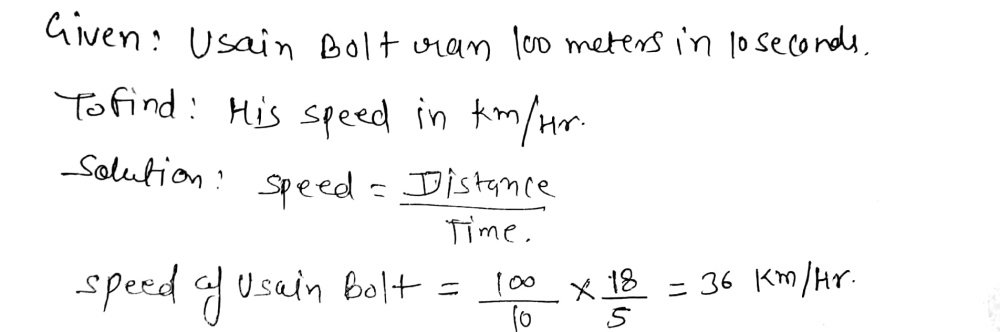 Given: Usain Bolt ran 100 meters in 10 seconds.
To find: His speed in km/Hr.
Solution: Speed = Distance / Time.
Speed of Usain Bolt = 100/10 × 18/5 = 36 Km/Hr.